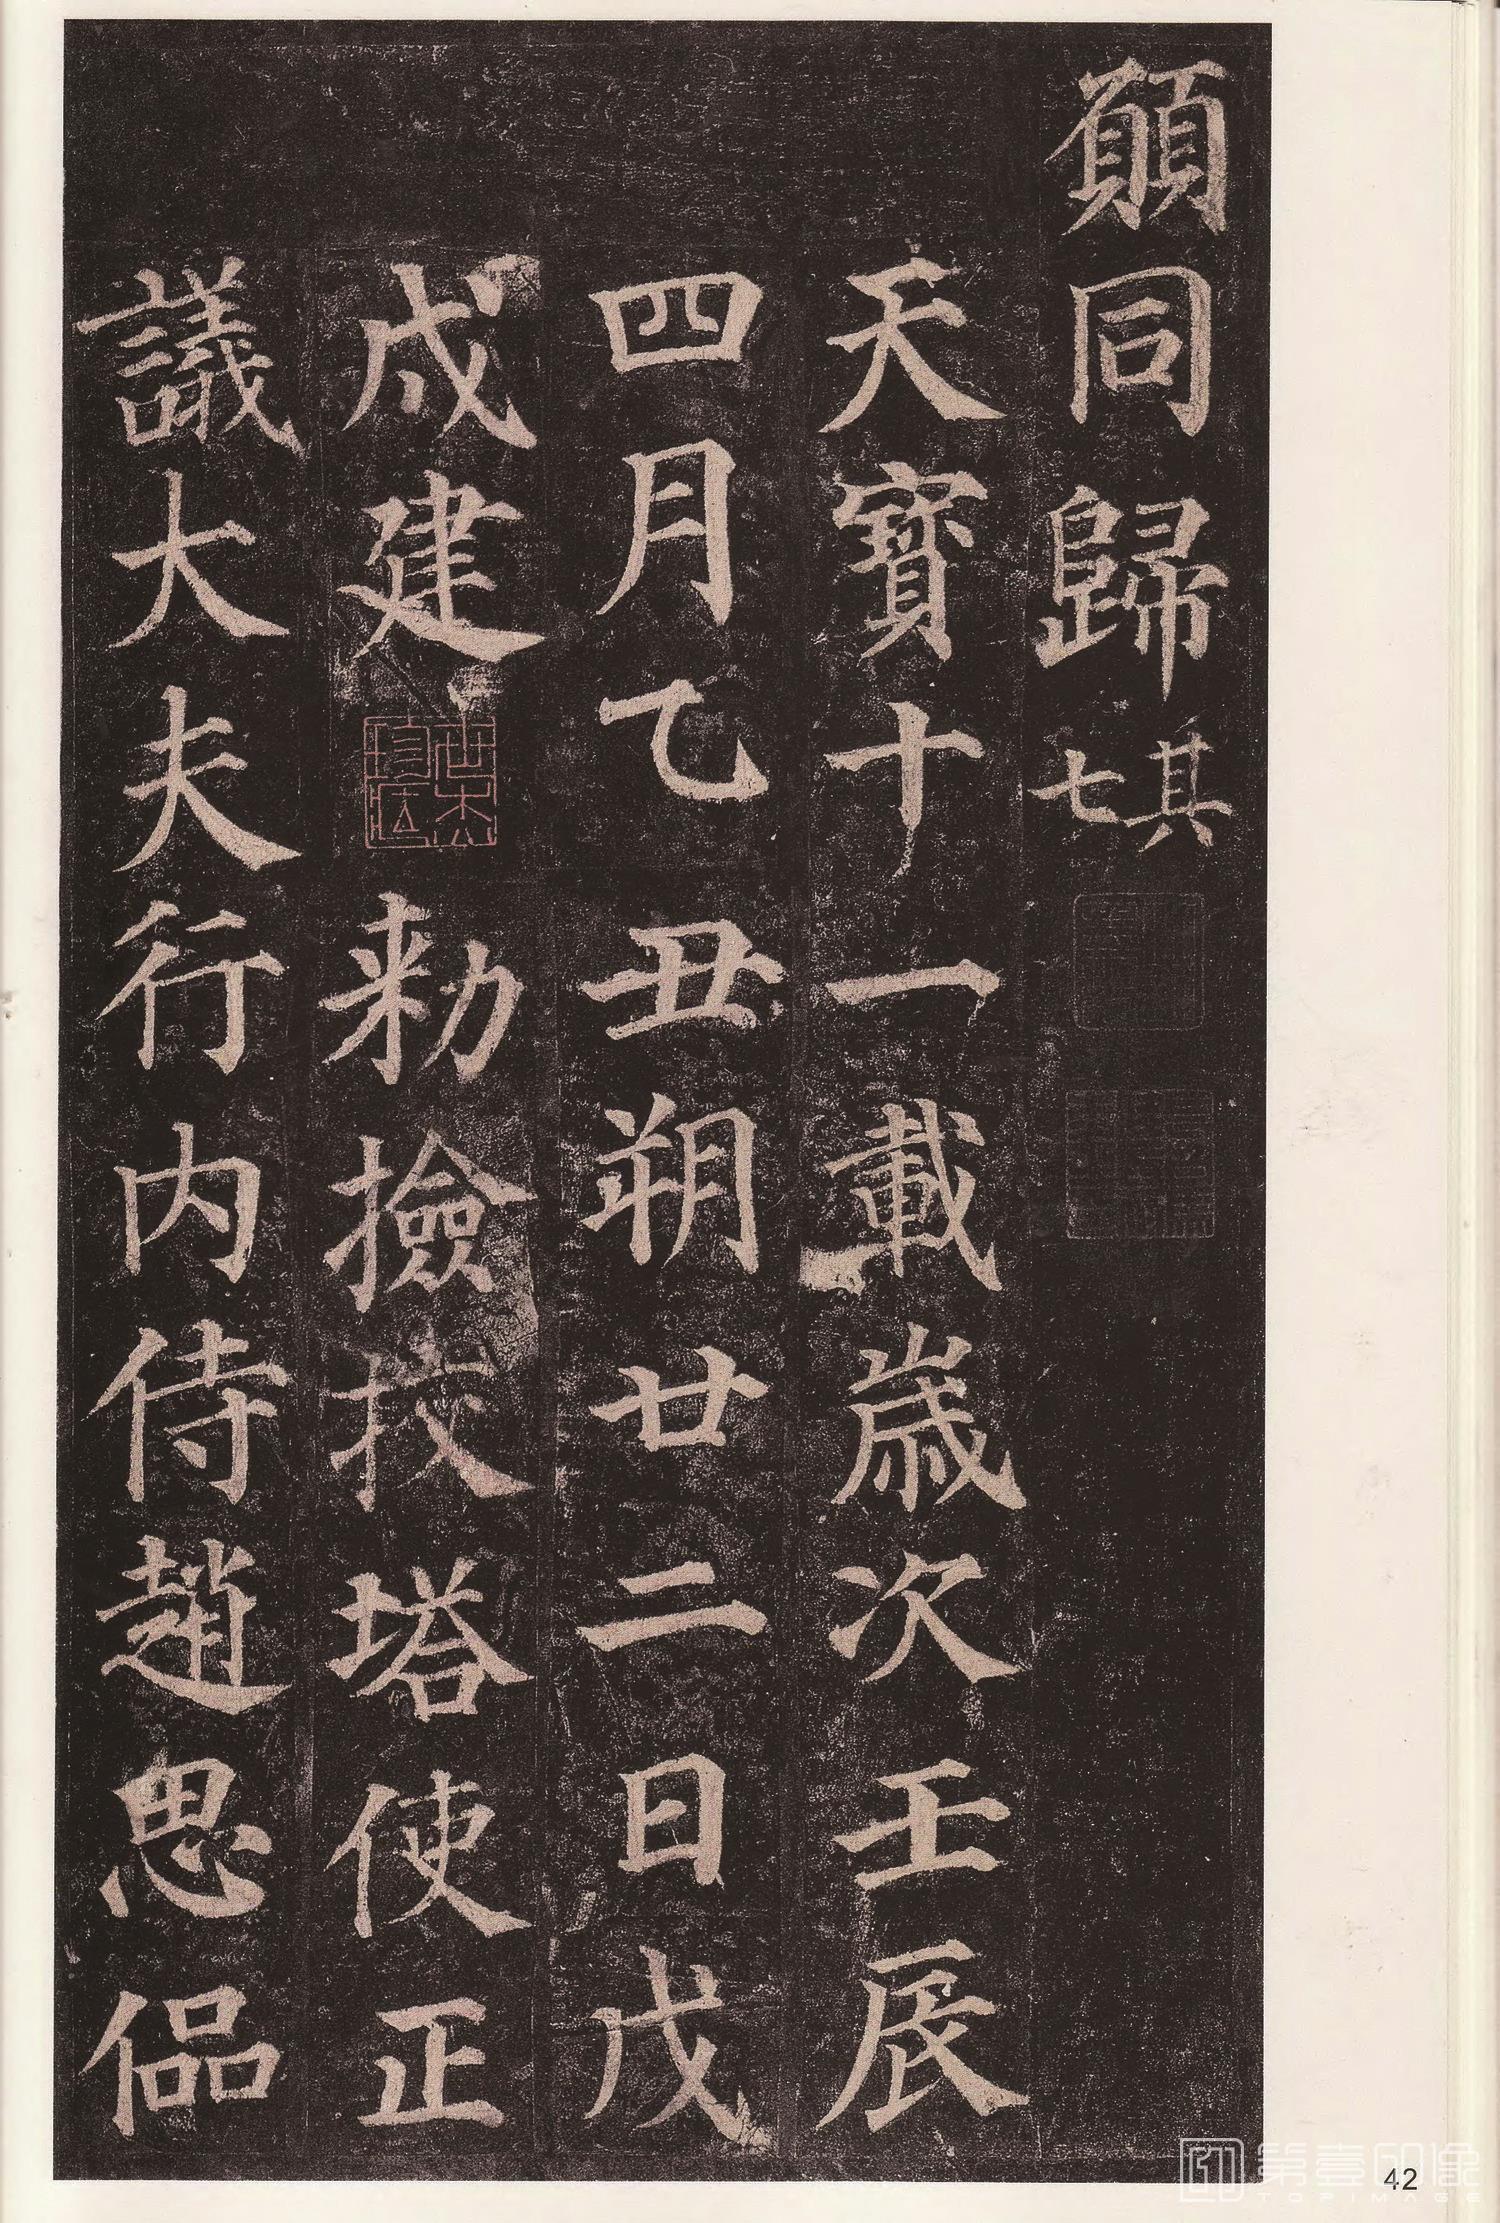 願同歸其七
天寶十一載歲次壬辰
四月乙丑朔廿二日戊
戌建敕撿挍塔使正
議大夫行内侍趙思侶
42
第壹印像
TOPIMAGE